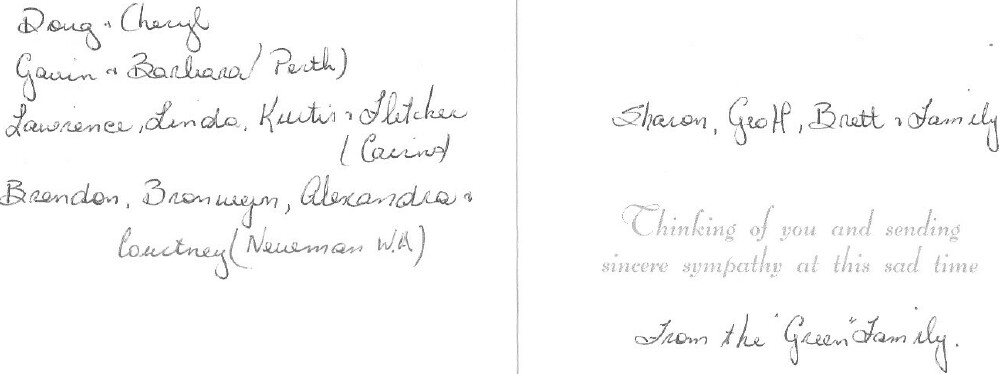 Doug & Cheryl
Gavin & Barbara (Perth)
Lawrence, Linda, Kurtis & Fletcher
(Cairns)
Brendon, Bronwyn, Alexandra &
Courtney (Neweman W.A)
Sharon, Geoff, Brett & Family
Thinking of you and sending
sincere sympathy at this sad time
From the "Green" Family.